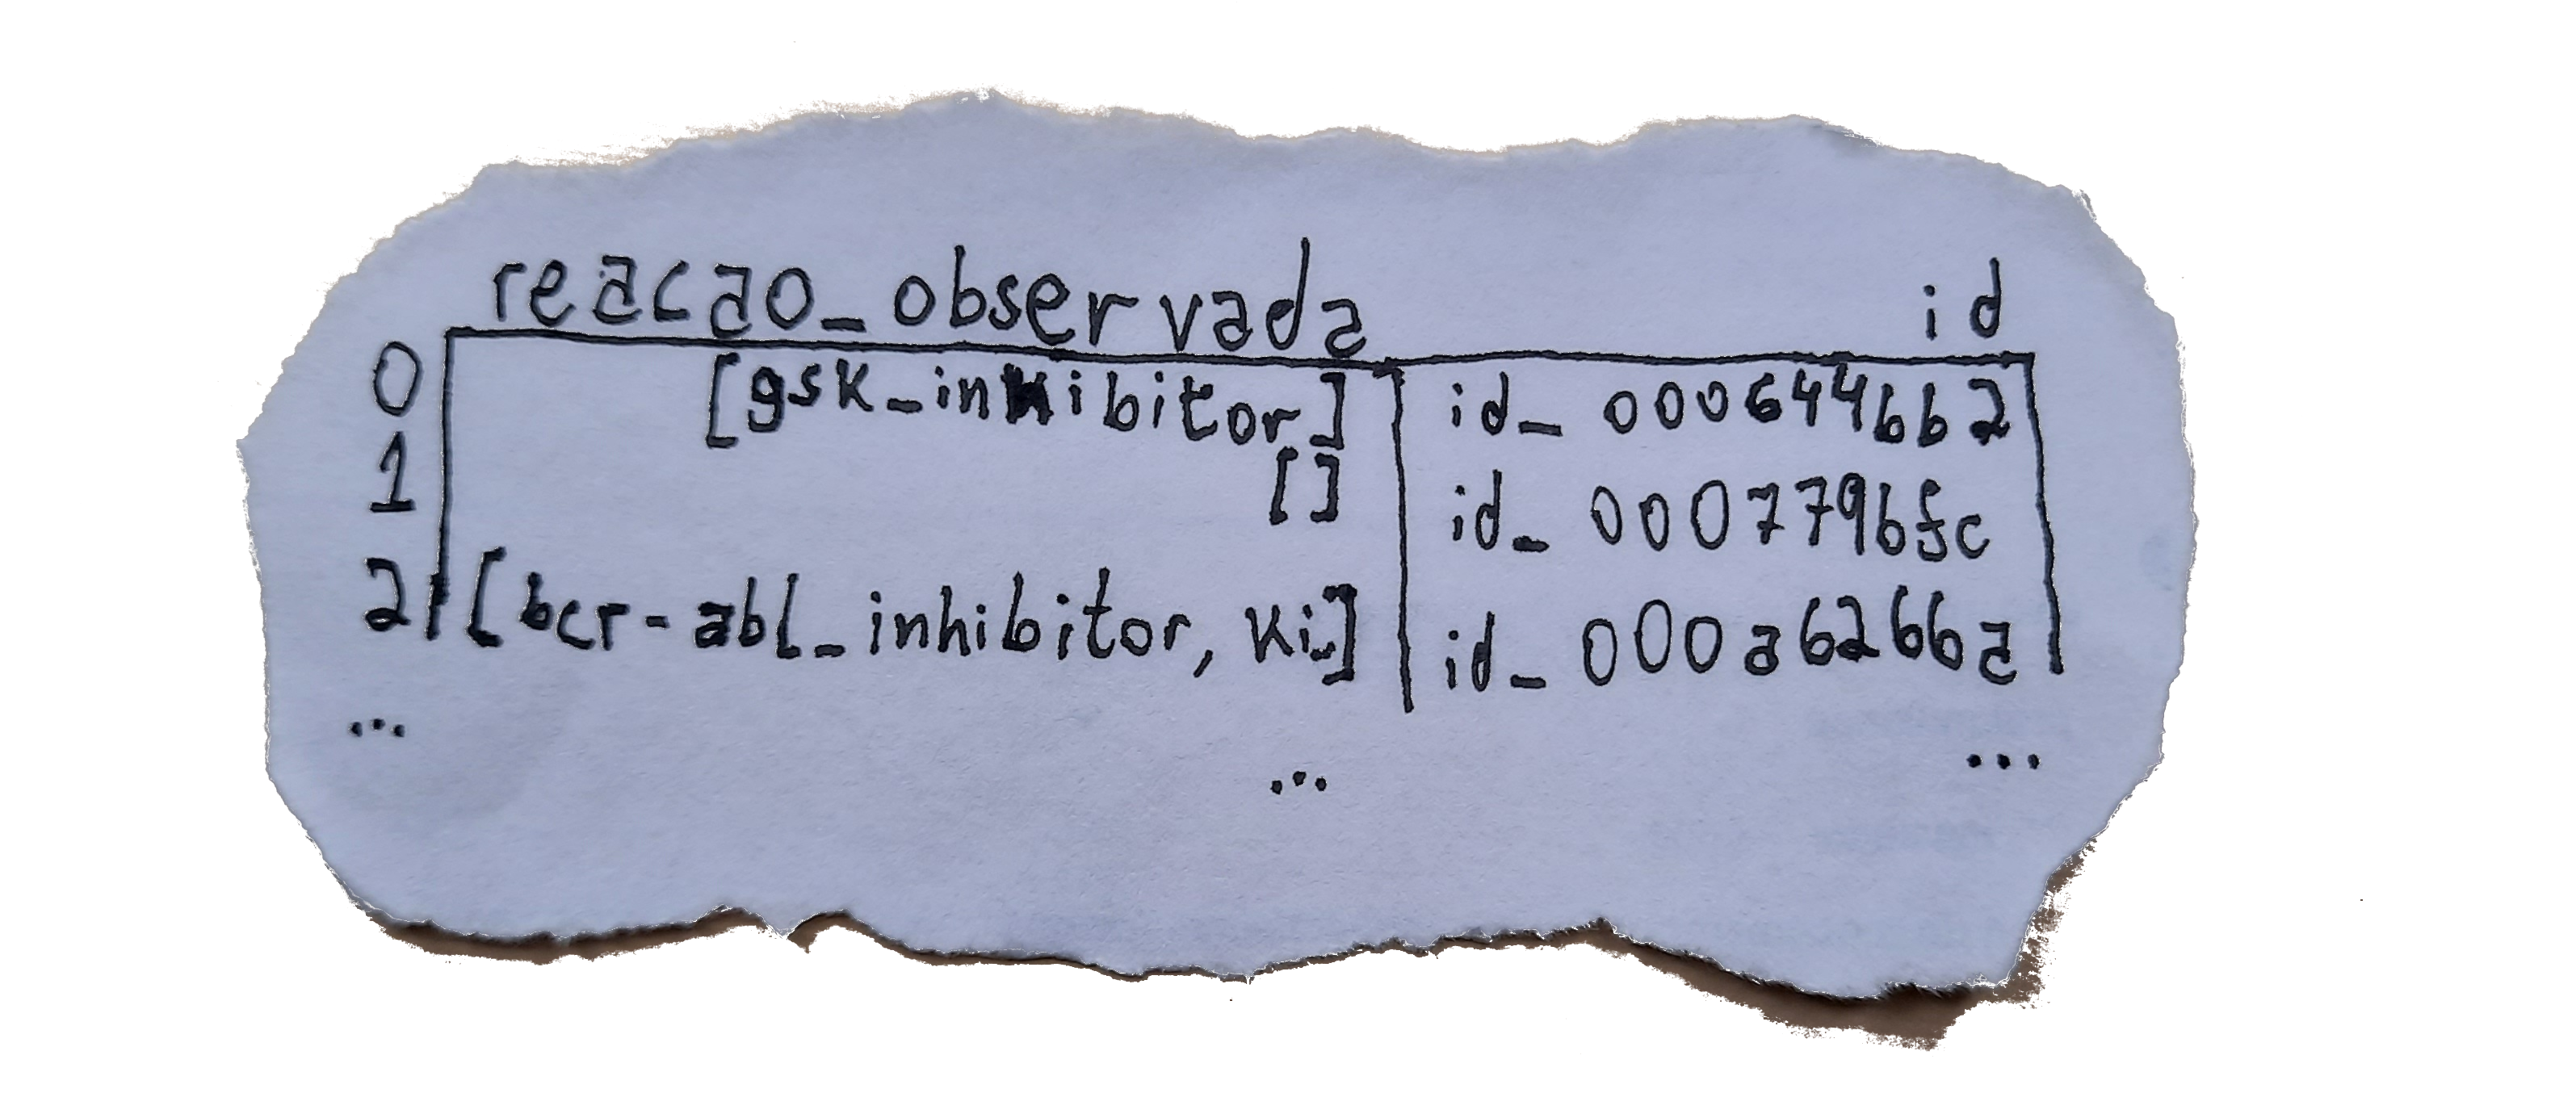 reacao_observada id
0 [gsk_inhibitor] id_000644bb2
1 [] id_000779bfc
2 [bcr-abl_inhibitor, ki..] id_000a6266a
... ... ...